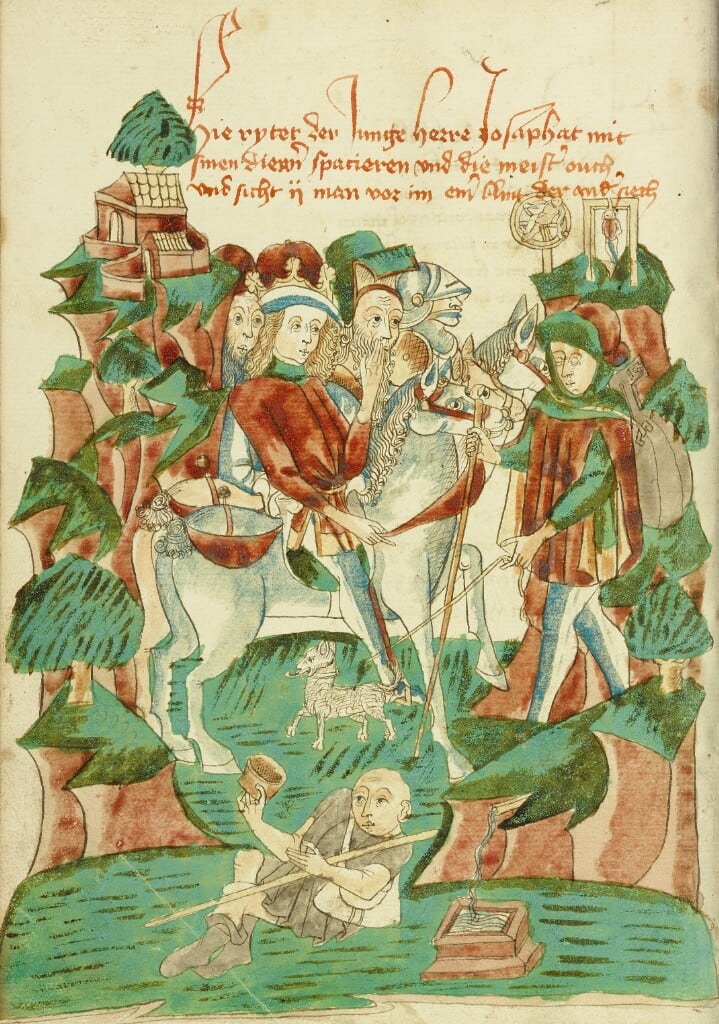 Hie rytet der Junge herre Josaphat mit
sinen diern̄ spacieren vnd die meist' ouch
vnd sicht ij man vor im ein̄ blint der and' siech